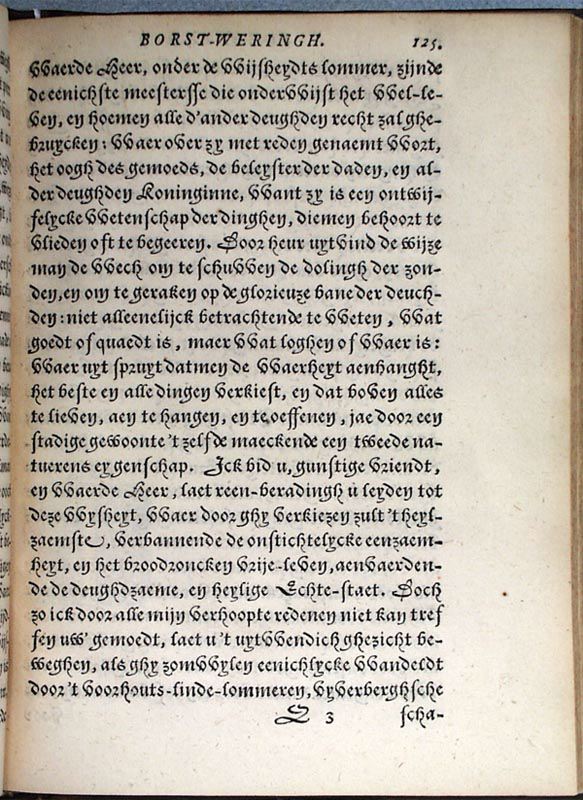 BORST-WERINGH. 125.
VVaerde Heer, onder de VVijsheydts lommer, zijnde
de eenichste meestersse die onderVVijst het VVel-le-
ven, en hoemen alle d'ander deughden recht zal ghe-
bruycken: VVaer over zy met reden genaemt VVort,
het oogh des gemoeds, de beleyster der daden, en al-
der deughden Koninginne, VVant zy is een ontwij-
felycke VVetenschap der dinghen, diemen behoort te
vlieden oft te begeeren. Door heur uytvind de wijze
man de VVech om te schuVVen de dolingh der zon-
den, en om te geraken op de glorieuze bane der deuch-
den: niet alleenelijck betrachtende te VVeten, VVat
goedt of quaedt is, maer VVat loghen of VVaer is:
VVaer uyt spruyt datmen de VVaerheyt aenhanght,
het beste en alle dingen verkiest, en dat boven alles
te lieven, aen te hangen, en te oeffenen, jae door een
stadige gewoonte 't zelfde maeckende een tweede na-
tuerens eygenschap. Ick bid u, gunstige vriendt,
en VVaerde Heer, laet reen-beradingh u leyden tot
deze VVysheyt, VVaer door ghy verkiezen zult 't heyl-
zaemste, verbannende de onstichtelycke eenzaem-
heyt, en het broodroncken vrije-leven, aenvaerden-
de de deughdzaeme, en heylige Echte-staet. Doch
zo ick door alle mijn verhoopte redenen niet kan tref
fen uw' gemoedt, laet u 't uytVVendich ghezicht be-
weghen, als ghy zomVVylen eenichlycke VVandeldt
door 't voorhouts-linde-lommeren, vyverberghsche
Q 3 scha-